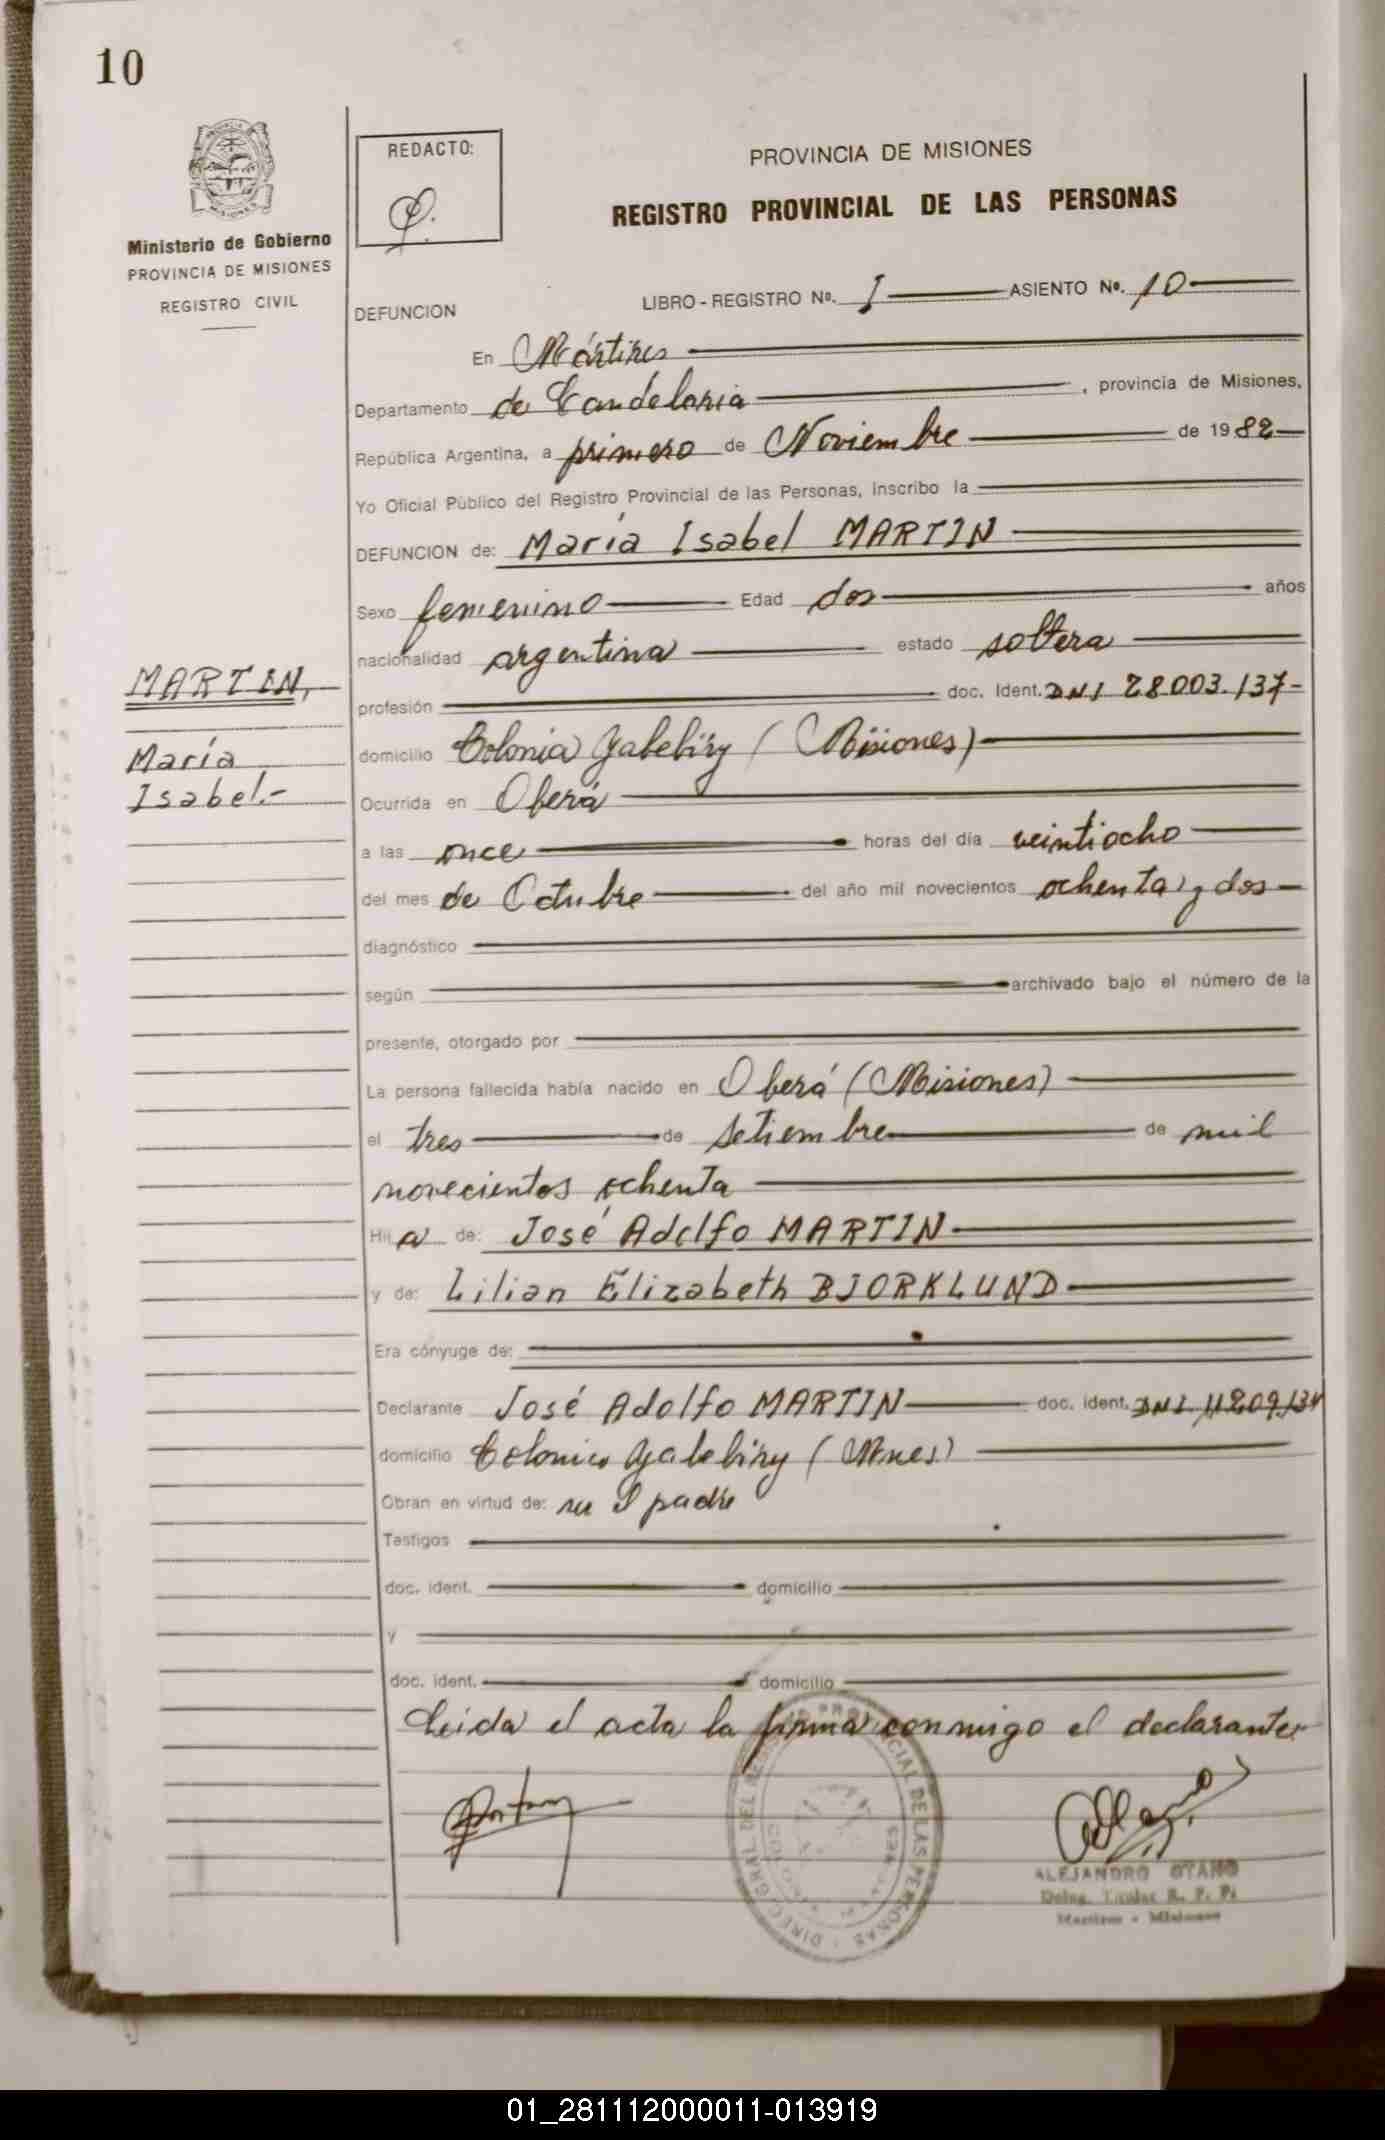 10
Ministerio de Gobierno
PROVINCIA DE MISIONES
REGISTRO CIVIL
REDACTO:
PROVINCIA DE MISIONES
REGISTRO PROVINCIAL DE LAS PERSONAS
DEFUNCION
LIBRO - REGISTRO Nº. I ASIENTO Nº. 10
En Mártires
Departamento de Candelaria, provincia de Misiones,
República Argentina, a primero de Noviembre de 1982
Yo Oficial Público del Registro Provincial de las Personas, inscribo la
DEFUNCION de: María Isabel MARTIN
Sexo femenino Edad dos años
nacionalidad argentina estado soltera
profesión doc. Ident. DNI 28.003.137-
MARTIN,
María
Isabel.-
domicilio Colonia Yabebiry (Misiones)
Ocurrida en Oberá
a las once horas del día veintiocho
del mes de Octubre del año mil novecientos ochenta y dos
diagnóstico
según archivado bajo el número de la
presente, otorgado por
La persona fallecida había nacido en Oberá (Misiones)
el tres de setiembre de mil
novecientos ochenta
Hij a de: José Adolfo MARTIN
y de: Lilian Elizabeth BJORKLUND
Era cónyuge de:
Declarante José Adolfo MARTIN doc. ident. DNI.
domicilio Colonia Yabebiry (Mnes)
Obran en virtud de: su padre
Testigos
doc. ident. domicilio
y
doc. ident. domicilio
Leida el acta la firma conmigo el declarante
ALEJANDRO OTAÑO
Deleg. Titular R. P. P.
Martires - Misiones
01_281112000011-013919